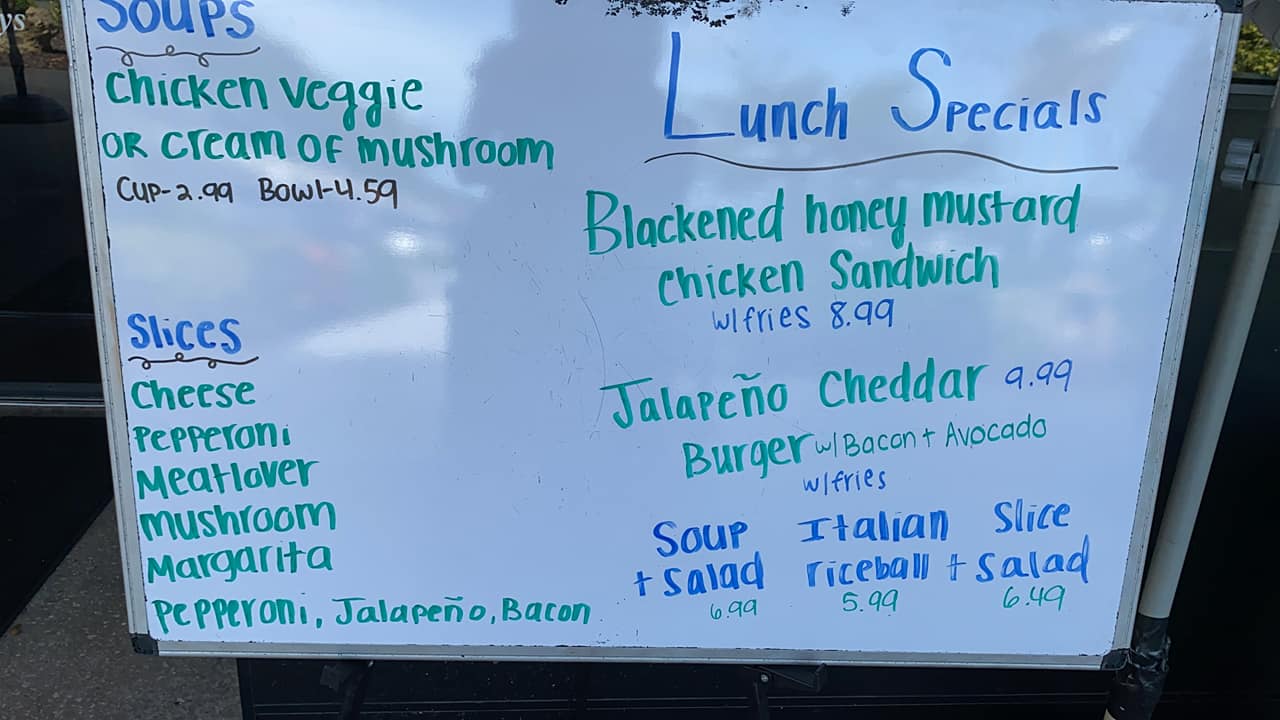 Soups
Chicken Veggie
OR Cream of mushroom
Cup-2.99 Bowl-4.59
Slices
Cheese
Pepperoni
Meatlover
mushroom
Margarita
Pepperoni, Jalapeño, Bacon
Lunch Specials
Blackened honey mustard
Chicken Sandwich
w/fries 8.99
Jalapeño Cheddar 9.99
Burger w/Bacon + Avocado
w/fries
Soup
+ Salad
6.99
Italian
riceball
5.99
Slice
+ Salad
6.49